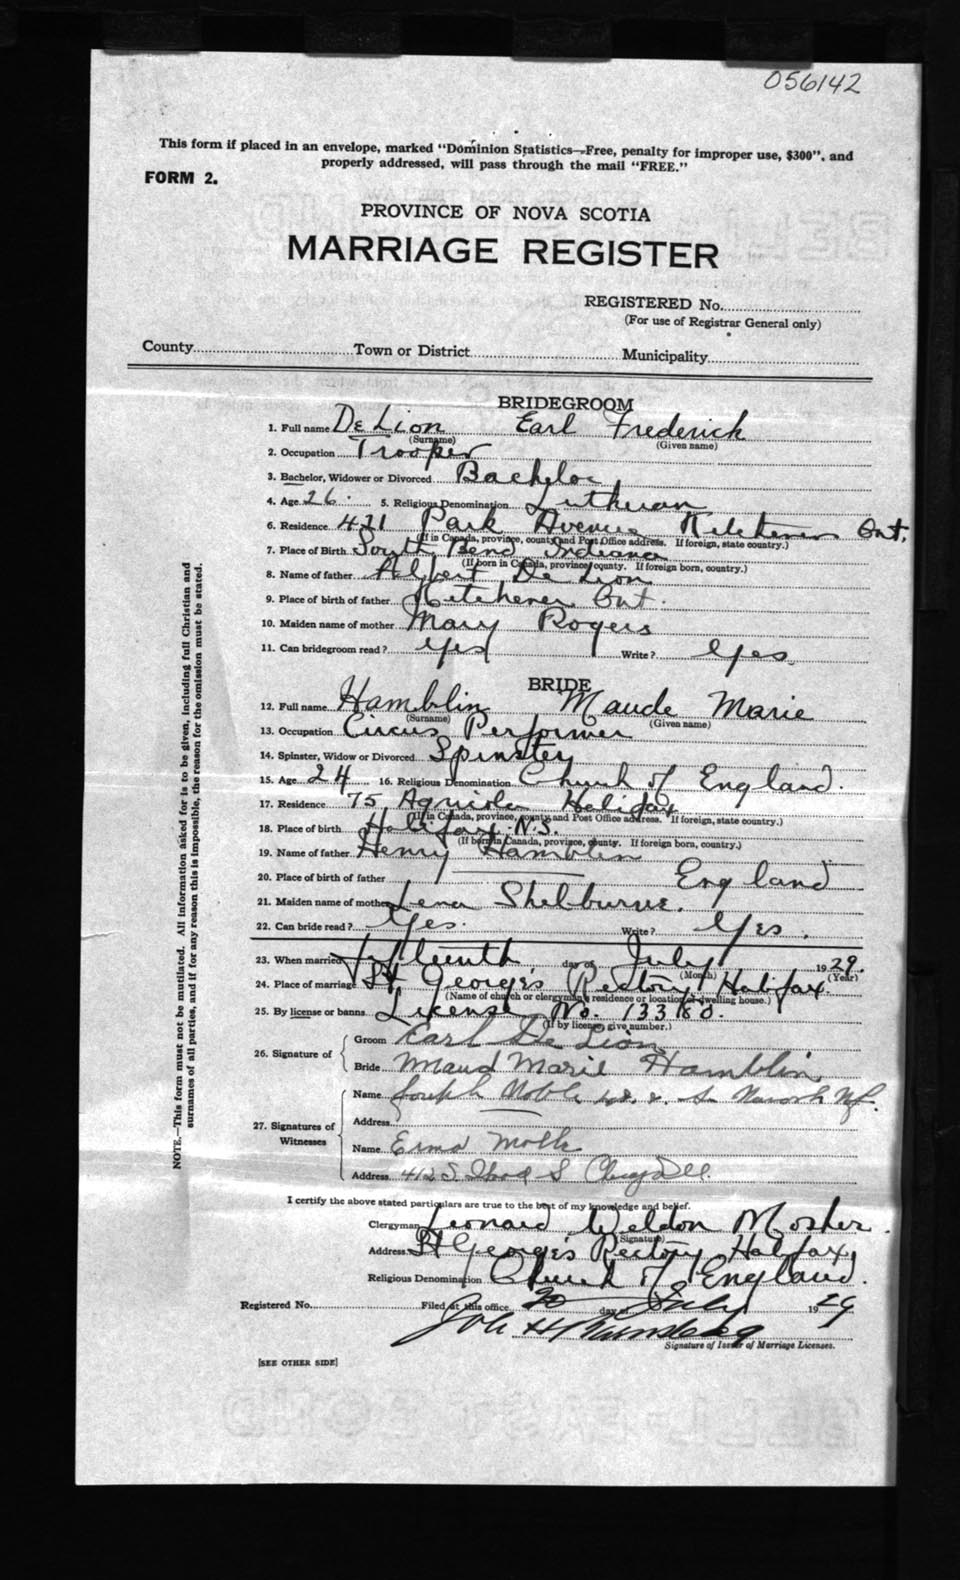 056142
This form if placed in an envelope, marked "Dominion Statistics—Free, penalty for improper use, $300", and
properly addressed, will pass through the mail "FREE."
FORM 2.
PROVINCE OF NOVA SCOTIA
MARRIAGE REGISTER
REGISTERED No.
(For use of Registrar General only)
County Town or District Municipality
BRIDEGROOM
1. Full name De Lion Earl Frederick
(Surname) (Given name)
2. Occupation Trooper
3. Bachelor, Widower or Divorced Bachelor
4. Age 26. 5. Religious Denomination Lutheran
6. Residence 421 Park Avenue Kitchener Ont.
(If in Canada, province, county and Post Office address. If foreign, state country.)
7. Place of Birth South Bend Indiana
(If born in Canada, province, county. If foreign born, country.)
8. Name of father Albert De Lion
9. Place of birth of father Kitchener Ont.
10. Maiden name of mother Mary Rogers
11. Can bridegroom read? Yes Write? Yes.
BRIDE
12. Full name Hamblin Maude Marie
(Surname) (Given name)
13. Occupation Circus Performer
14. Spinster, Widow or Divorced Spinster
15. Age 24 16. Religious Denomination Church of England.
17. Residence 75 Agricola Halifax
(If in Canada, province, county and Post Office address. If foreign, state country.)
18. Place of birth Halifax N.S.
(If born in Canada, province, county. If foreign born, country.)
19. Name of father Henry Hamblin
20. Place of birth of father England
21. Maiden name of mother Lena Shelburne.
22. Can bride read? Yes. Write? Yes.
23. When married fifteenth day of July 1929.
(Month) (Year)
24. Place of marriage St. George's Rectory Halifax.
(Name of church or clergyman's residence or location of dwelling house.)
25. By license or banns License No. 13380.
(If by license, give number.)
26. Signature of
Groom Earl De Lion
Bride Maud Marie Hamblin
27. Signatures of Witnesses
Name Joseph Noble
Address
Name
Address 412 S.
I certify the above stated particulars are true to the best of my knowledge and belief.
Clergyman Leonard Weldon Mosher.
(Signature)
Address St George's Rectory Halifax
Religious Denomination Church of England.
Registered No. Filed at this office 20 day of July 1929
Signature of Issuer of Marriage Licenses.
[SEE OTHER SIDE]
NOTE.—This form must not be mutilated. All information asked for is to be given, including full Christian and
surnames of all parties, and if for any reason this is impossible, the reason for the omission must be stated.